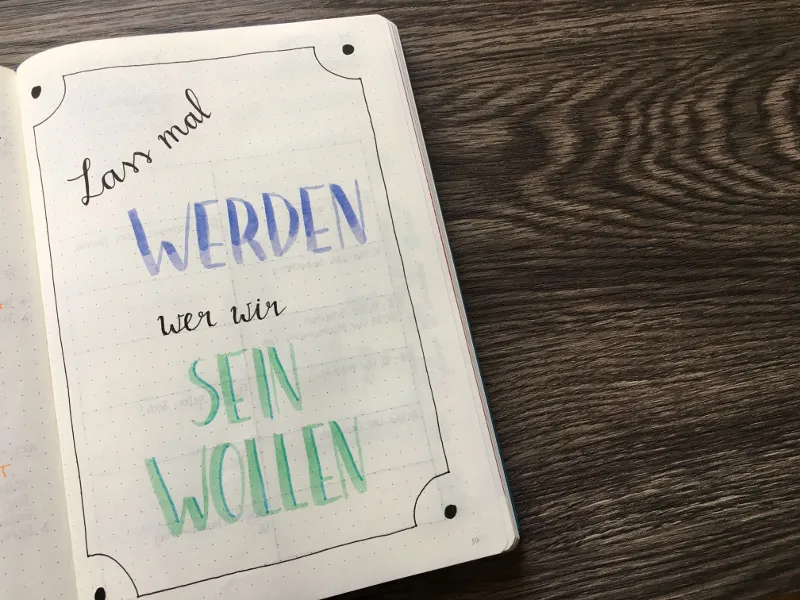 Lass mal
WERDEN
wer wir
SEIN
WOLLEN